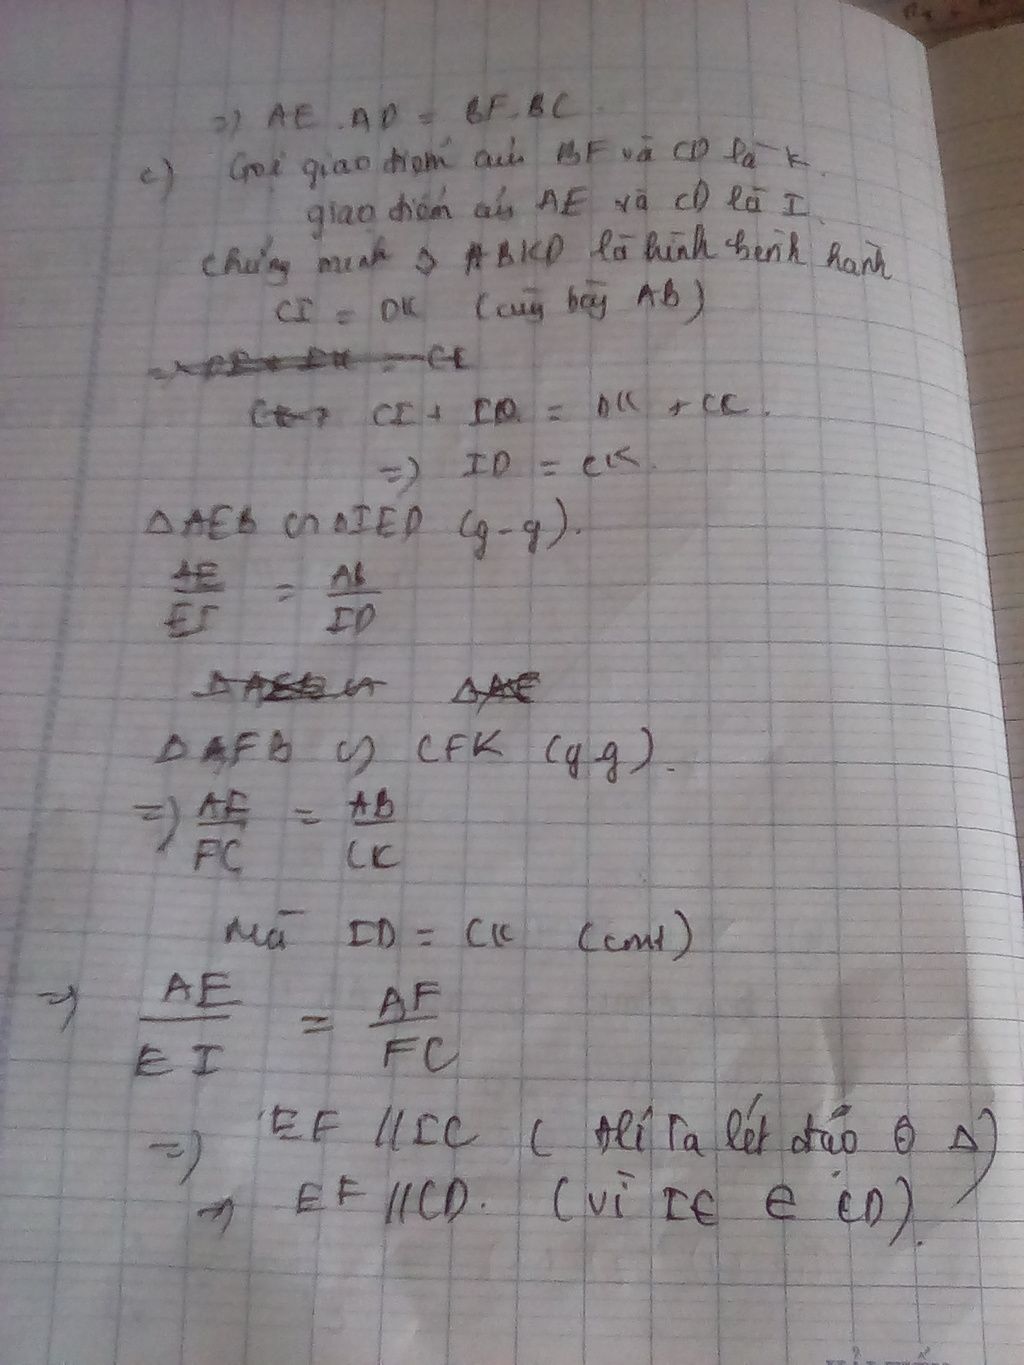 =) AE . AD = BF . BC
c) Gọi giao điểm của BF và CD là K.
giao điểm của AE và CD là I.
chứng minh ABKD là hình bình hành
CI = DK (cùng bằng AB)
CI + ID = DK + CK.
=) ID = CK.
ΔAEB ∽ ΔIED (g-g).
AE/EI = AB/ID
ΔAFB ∽ CFK (g-g).
=) AF/FC = AB/CK
Mà ID = CK (cmt)
=) AE/EI = AF/FC
=) EF // IC ( đlí Ta lét đảo Δ)
=) EF // CD. (vì IC ∈ CD).